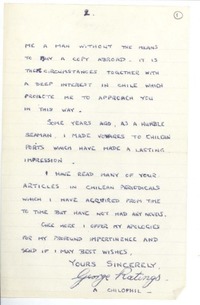 2.
ME A MAN WITHOUT THE MEANS
TO BUY A COPY ABROAD. IT IS
THESE CIRCUMSTANCES TOGETHER WITH
A DEEP INTEREST IN CHILE WHICH
PROVOKE ME TO APPROACH YOU
IN THIS WAY.
SOME YEARS AGO, AS A HUMBLE
SEAMAN, I MADE VOYAGES TO CHILEAN
PORTS WHICH HAVE MADE A LASTING
IMPRESSION.
I HAVE READ MANY OF YOUR
ARTICLES IN CHILEAN PERIODICALS
WHICH I HAVE ACQUIRED FROM TIME
TO TIME BUT HAVE NOT HAD ANY NOVELS.
ONCE MORE I OFFER MY APOLOGIES
FOR MY PROFOUND IMPERTINENCE AND
SEND IF I MAY BEST WISHES.
YOURS SINCERELY,
George Ratings.
A CHILOPHIL -